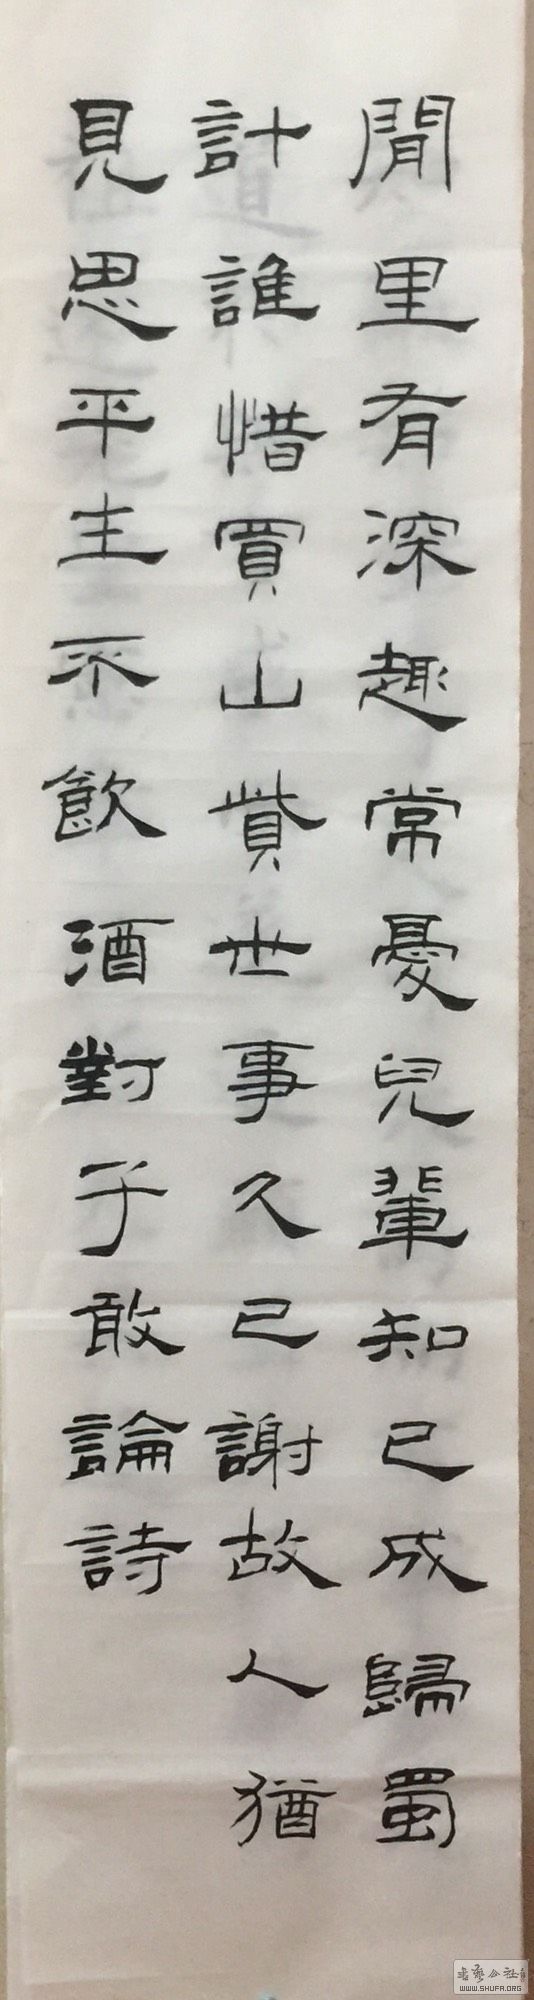 閒里有深趣常憂兒輩知已成歸蜀
計誰惜買山貲世事久已謝故人猶
見思平生不飲酒對子敢論詩
書藝公社
WWW.SHUFA.ORG